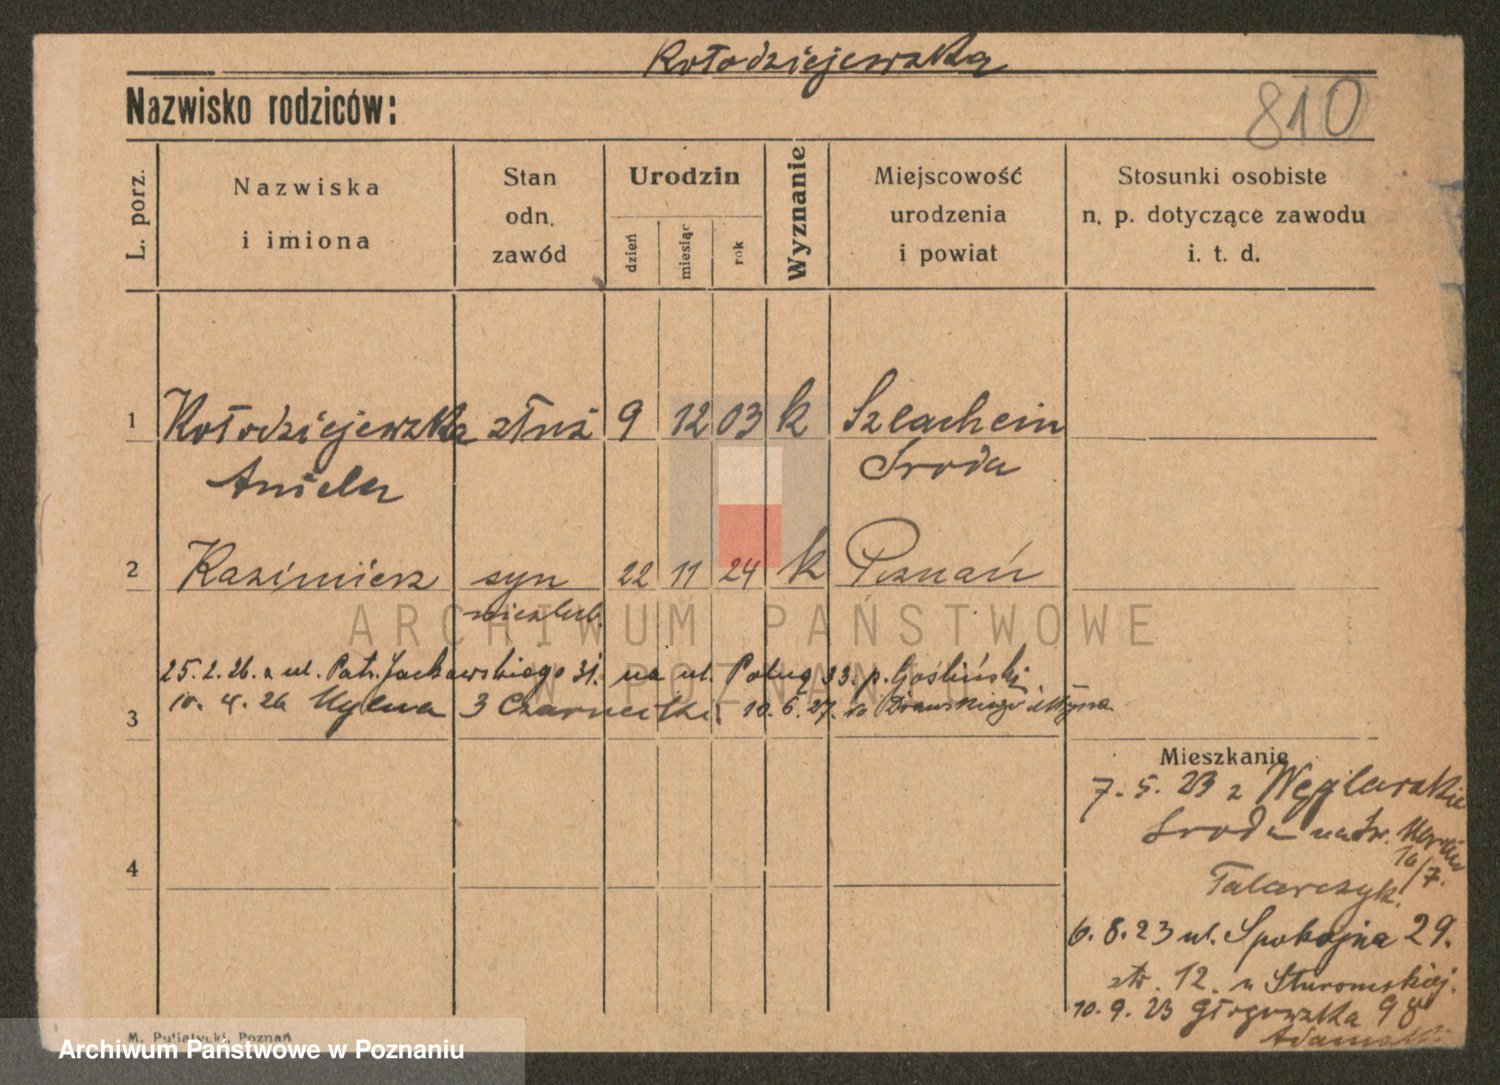 Kołodziejewska
810
Nazwisko rodziców:
L. porz.
Nazwiska
i imiona
Stan
odn.
zawód
Urodzin
dzień
miesiąc
rok
Wyznanie
Miejscowość
urodzenia
i powiat
Stosunki osobiste
n. p. dotyczące zawodu
i. t. d.
1 Kołodziejewska służ 9 12 03 k Szlachcin
Aniela Sroda
2 Kazimierz syn 22 11 24 k Poznań
nieślub.
ARCHIWUM PAŃSTWOWE
W POZNANIU
25.2.26. z ul. Patr. Jackowskiego 31. na ul. Polną 33. p. Gośliński
10. 4. 26 3 10. 5. 27.
3
Mieszkanie
7. 5. 23 z
Sroda na Św. Marcin
16/7.
Talarczyk.
4
6. 8. 23 ul. Spokojna 29.
str. 12. u
10. 9. 23 Głogowska 98
Adamski
M. Putiatycki, Poznań
Archiwum Państwowe w Poznaniu